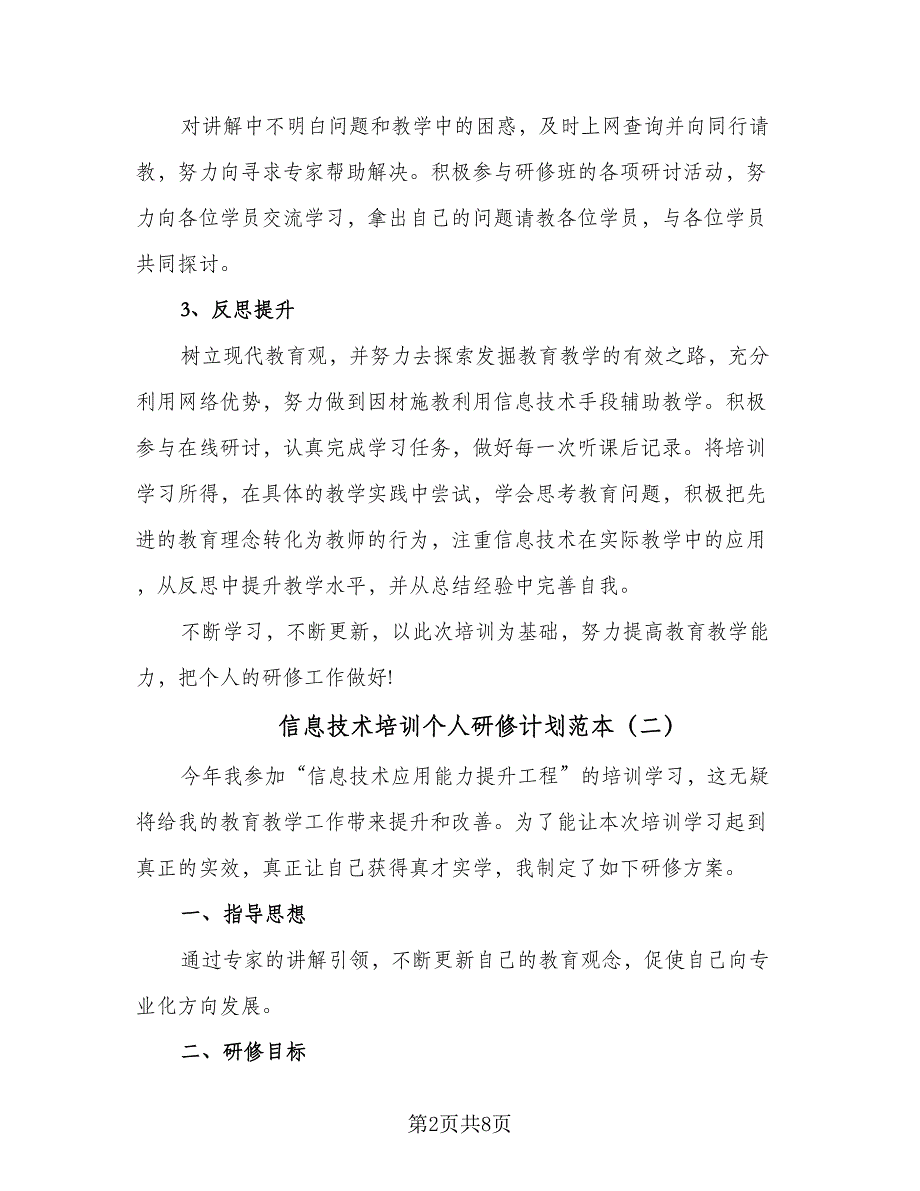 对讲解中不明白问题和教学中的困惑，及时上网查询并向同行请
教，努力向寻求专家帮助解决。积极参与研修班的各项研讨活动，努
力向各位学员交流学习，拿出自己的问题请教各位学员，与各位学员
共同探讨。
3、反思提升
树立现代教育观，并努力去探索发掘教育教学的有效之路，充分
利用网络优势，努力做到因材施教利用信息技术手段辅助教学。积极
参与在线研讨，认真完成学习任务，做好每一次听课后记录。将培训
学习所得，在具体的教学实践中尝试，学会思考教育问题，积极把先
进的教育理念转化为教师的行为，注重信息技术在实际教学中的应用
，从反思中提升教学水平，并从总结经验中完善自我。
不断学习，不断更新，以此次培训为基础，努力提高教育教学能
力，把个人的研修工作做好!
信息技术培训个人研修计划范本（二）
今年我参加“信息技术应用能力提升工程”的培训学习，这无疑
将给我的教育教学工作带来提升和改善。为了能让本次培训学习起到
真正的实效，真正让自己获得真才实学，我制定了如下研修方案。
一、指导思想
通过专家的讲解引领，不断更新自己的教育观念，促使自己向专
业化方向发展。
二、研修目标
第2页共8页